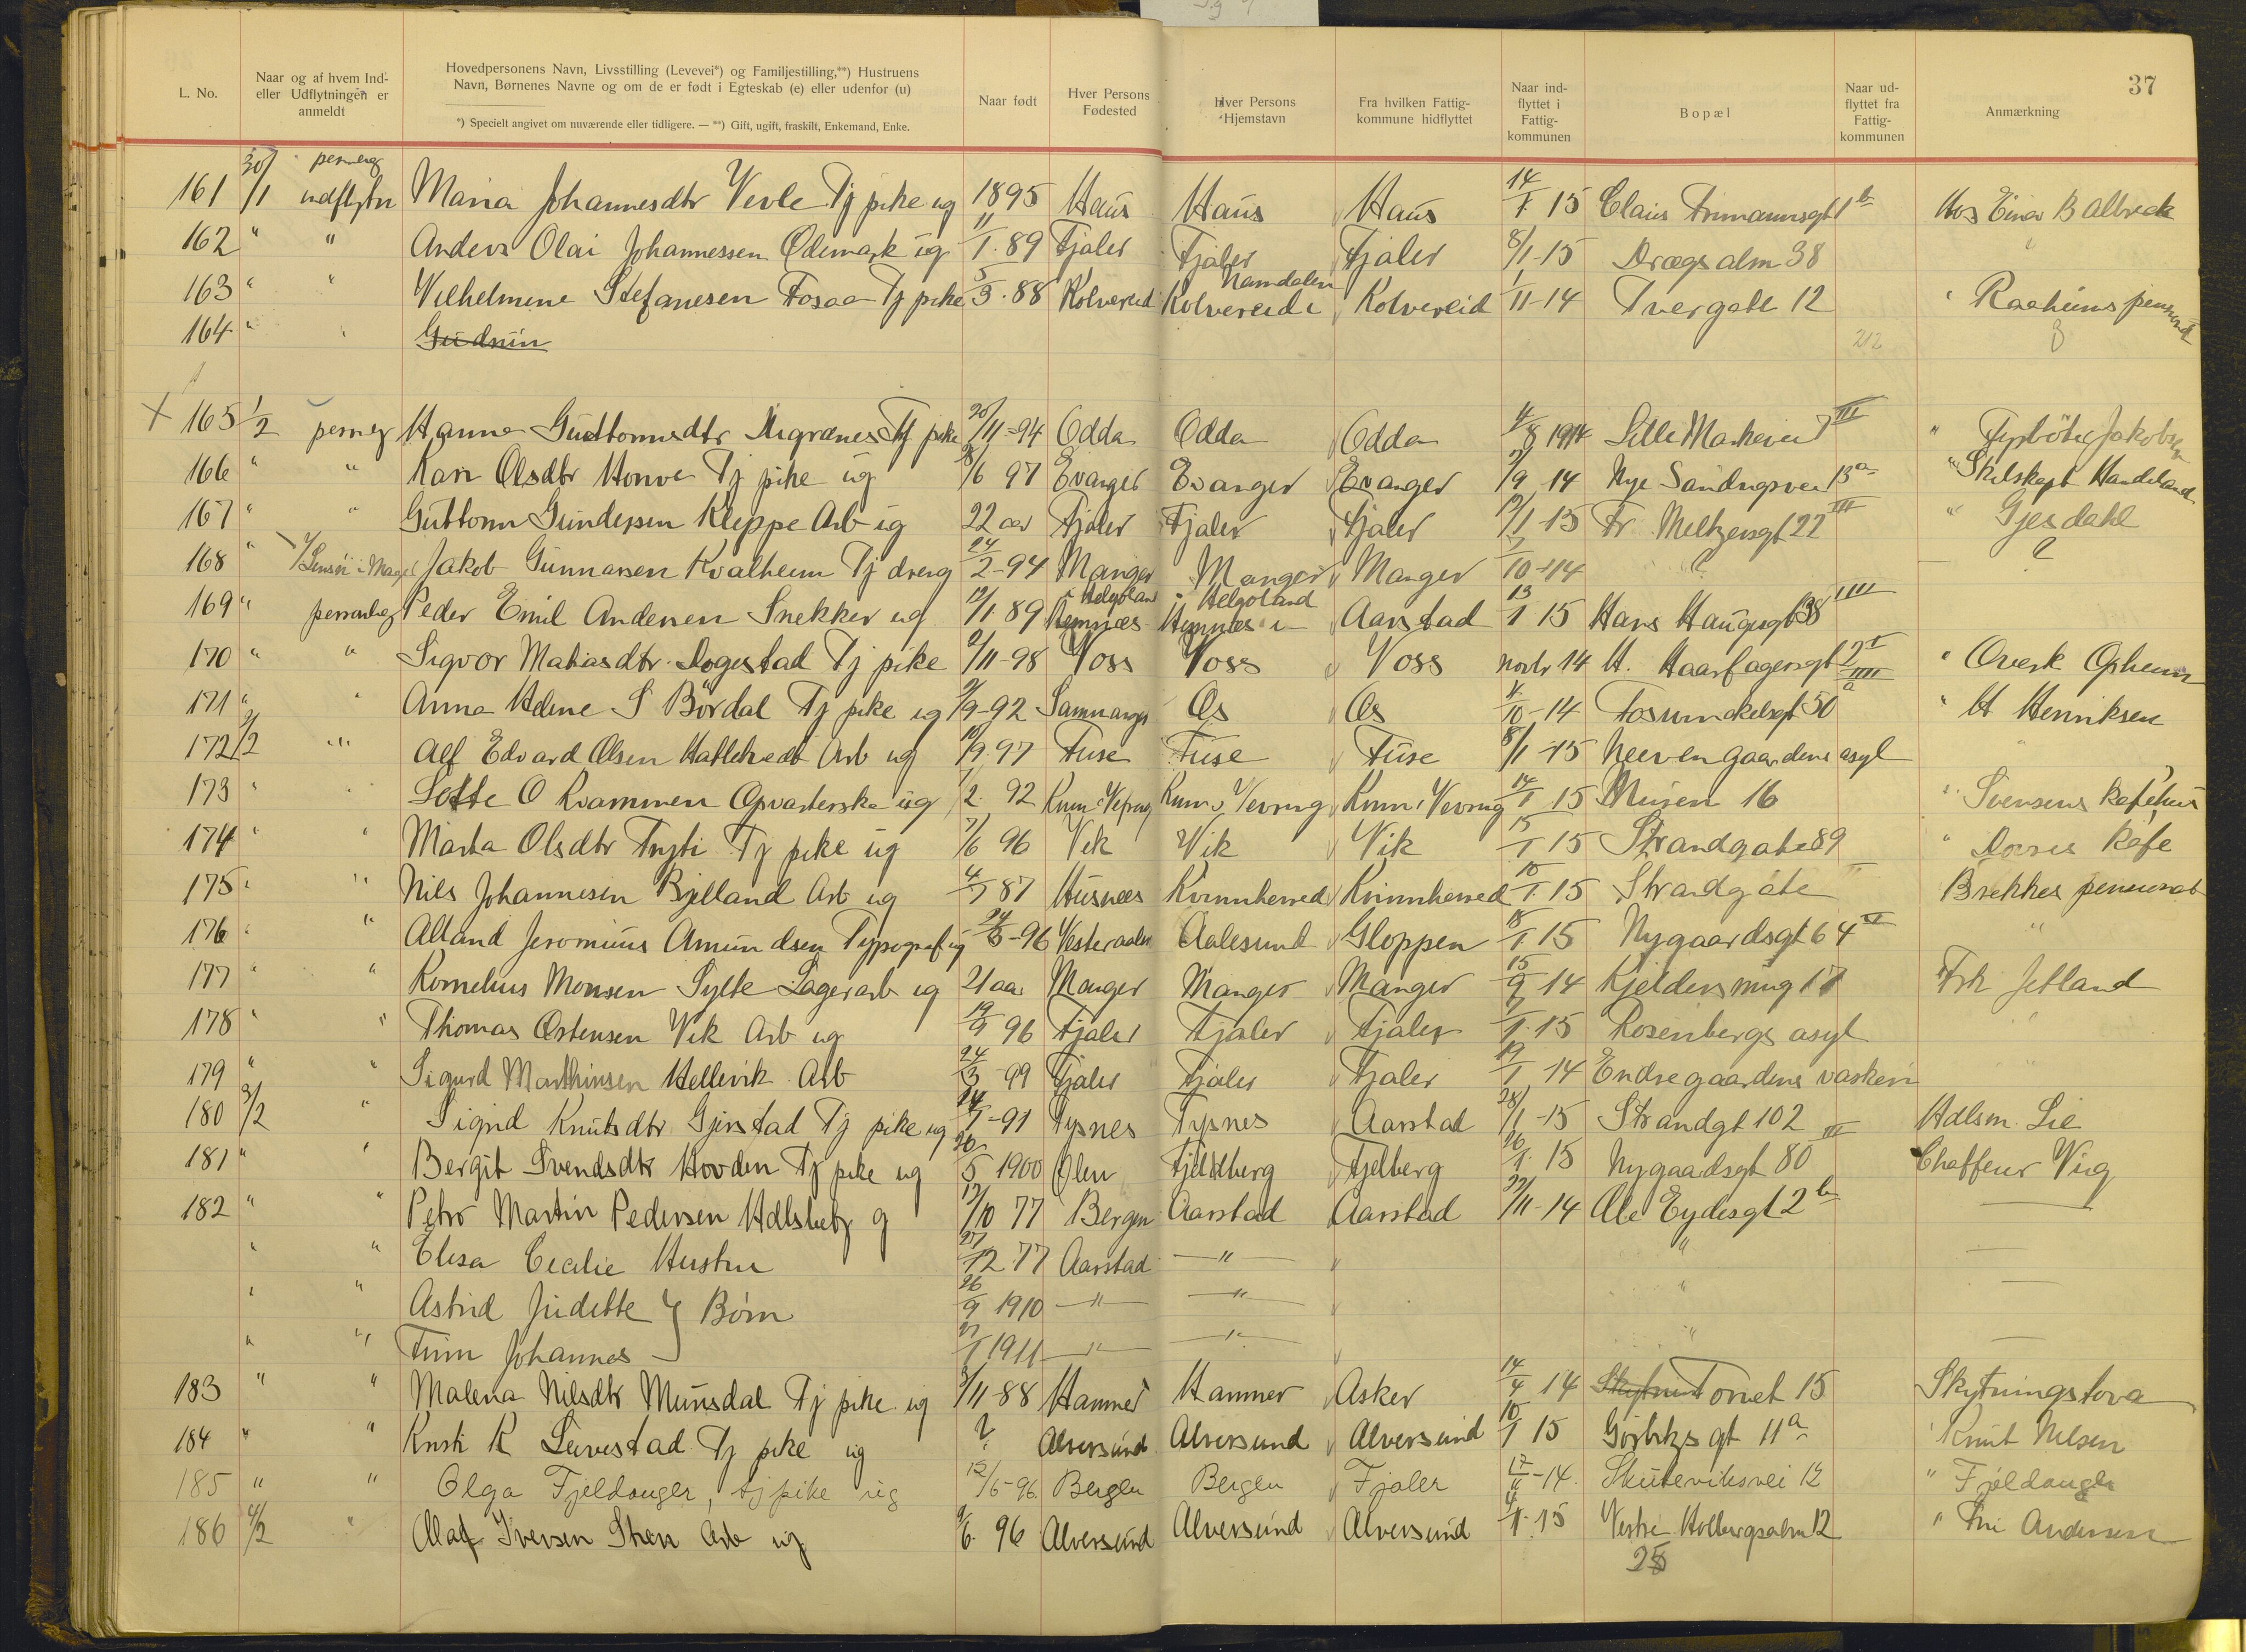 37
L. No.
Naar og af hvem Ind- eller Udflytningen er anmeldt
Hovedpersonens Navn, Livsstilling (Levevei*) og Familjestilling,**) Hustruens Navn, Børnenes Navne og om de er født i Egteskab (e) eller udenfor (u)
*) Specielt angivet om nuværende eller tidligere. — **) Gift, ugift, fraskilt, Enkemand, Enke.
Naar født
Hver Persons Fødested
Hver Persons Hjemstavn
Fra hvilken Fattig- kommune hidflyttet
Naar ind- flyttet i Fattig- kommunen
Bopæl
Naar ud- flyttet fra Fattig- kommunen
Anmærkning
161 30/1 udflytn Maria Johannesdtr Vevle Tj pike ug 1895 Haus Haus Haus 14/1 15 Claus 1b Hos
162 " " Anders Olai Johannessen Ødemark ug 11/1. 89 Fjaler Fjaler Fjaler 8/1-15 Drægsalm 38 "
163 " " Vilhelmine Stefanesen Fosaa Tj pike 5/3. 88 Kolvereid Kolvereid i Namdalen Kolvereid 1/11-14 Tvergate 12 " Raaheims
164 " " Gudrun 212
X 165 1/2 Hanna Guttormsdtr Tj pike 20/11-94 Odda Odda Odda 4/8 1914 Lille Markevei 7 III " Fyrbøter Jakobsen
166 " " Kari Olsdtr Honve Tj pike ug 8/6 97 Evanger Evanger Evanger 9/9 14 Nye Sandvigsvei 13a "
167 " " Guttorm Gundersen Kleppe Arb ug 22 aar Fjaler Fjaler Fjaler 12/1-15 Fr. Meltzersgt 22 III " Gjesdahl
168 " Jakob Gunnarsen Kvalheim Tj dreng 24/2-94 Manger Manger Manger 10-14 ? ?
169 " Peder Emil Andersen Snekker ug 12/1 89 Hemnæs i Helgoland Hemnæs i Helgoland Aarstad 13/1 15 Hans Haugesgt 38 IIII
170 " " Sigvor Matiasdtr. Dogestad Tj pike 2/11-98 Voss Voss Voss novbr 14 H. Haarfagersgt 2 IIII " Overk Opheim
171 " " Anna Heline S Børdal Tj pike ug 9/9-92 Samnanger Os Os 4/10-14 Fosswinckelsgt 50 a " H Henriksen
172 2/2 " Alf Edvard Olsen Hattehvedt Arb ug 10/9. 97 Fuse Fuse Fuse 8/1-15 Neevengaardens asyl "
173 " " Lotte O Kvammen Opvarterske ug 7/2. 92 Kinn i Vevring Kinn i Vevring 14/1 15 Muren 16 " Svensens kafehus
174 " " Marta Olsdtr Tryti Tj pike ug 7/6 96 Vik Vik Vik 15/1 15 Strandgate 89 " kafe
175 " " Nils Johannesen Bjelland Arb ug 4/7 87 Husnees Kvinnherred Kvinnherred 10/1. 15 Strandgate Brekkes pensionat
176 " " Amundsen Typograf ug 24/3-96 Vesteraalen Aalesund Gloppen 15/1 15 Nygaardsgt 64 "
177 " " Kornelius Monsen Sylte Lagerarb ug 21 aar Manger Manger Manger 15/9 14 Kjeldersmug 17 Frk Jetland
178 " " Thomas Østensen Vik Arb ug 19/9 96 Fjaler Fjaler Fjaler 1/1. 15 Rosenbergs asyl "
179 " " Sigurd Marthinsen Hellevik Arb 24/3 99 Fjaler Fjaler Fjaler 19/1 14 Endregaardens vaskeri "
180 3/2 " Sigrid Knutsdtr Gjerstad Tj pike ug 24/7-91 Tysnes Tysnes Aarstad 28/1-15 Strandgt 102 Hdlsm. Lie
181 " " Bergit Svendsdtr Hovden Tj pike ug 20/5 1900 Ølen Fjeldberg Fjelberg 26/1. 15 Nygaadsgt 80 III Chaffeur Vig
182 " " Petro Martin Pedersen g 12/10 77 Bergen Aarstad Aarstad 22/11-14 Ole Eydesgt 2b —
" " Elisa Cecilie Hustru 27/12 77 Aarstad — " — " —
" " Astrid Judette } Børn 26/9 1910 — " — — " — " —
" " Finn Johannes 27/1 1911 — " — — " — " —
183 " " Malena Nilsdtr Munsdal Tj pike ug 3/11-88 Hammer Hammer Asker 14/4 14 Torvet 15 Skytningstova
184 " " Kristi K Tj pike ug ? Alversund Alversund Alversund 10/1 15 Gørbitzsgt 11a " Knut Nilsen
185 " " Olga Fjeldanger, tj pike ug 12/6-96. Bergen Bergen Fjaler 17/11-14. Skuteviksvei 12 " Fjeldanger
186 4/2 " Olaf Iversen Arb ug 9/6. 96 Alversund Alversund Alversund 4/1. 15 Vestre Holbergsalm 12 " Fru Andersen
25